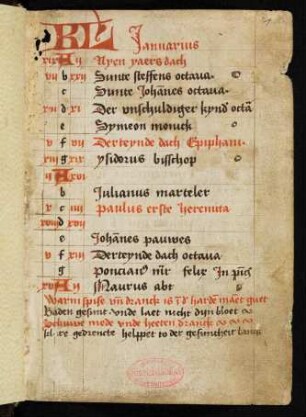 KL Januarius
A Nyen yaersdach
b Sunte steffens octava
c Sunte Johanes octava
d Der vnschuldiger kynd octa
e Symeon monick
f Derteynde dach Epiphani
g ysidorus bisschop
A
b Julianus marteler
c Paulus erste heremita
d
e Johanes pauwes
f Derteynde dach octava
g Ponciani mr felix in
A Maurus abt
Warm spise vn dranck is harde guet
Baden gesunt vnde laet nicht dyn bloet
mede vnde heeten dranck
gedrencte helppet to der gesuntheit